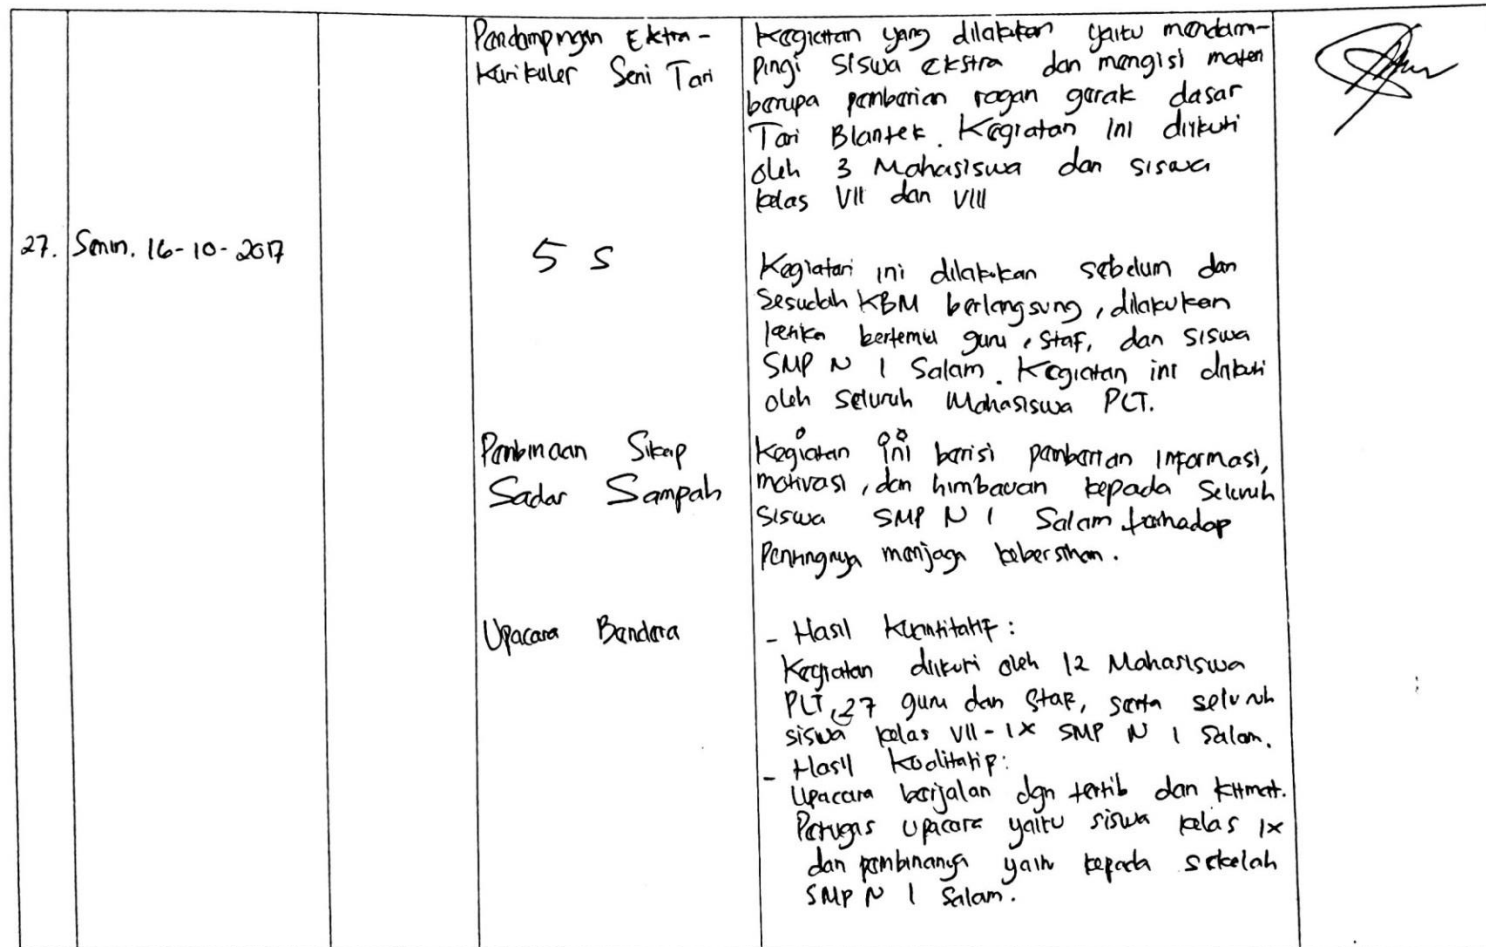 Pendampingan Ekstra-
Kurikuler Seni Tari
Kegiatan yang dilakukan yaitu mendam-
pingi siswa ekstra dan mengisi materi
berupa pemberian ragam gerak dasar
Tari Blantek. Kegiatan ini diikuti
oleh 3 Mahasiswa dan siswa
kelas VII dan VIII
27. Senin, 16-10-2017
5 S
Kegiatan ini dilakukan sebelum dan
Sesudah KBM berlangsung, dilakukan
ketika bertemu guru, staf, dan siswa
SMP N 1 Salam. Kegiatan ini diikuti
oleh seluruh Mahasiswa PLT.
Pembinaan Sikap
Sadar Sampah
Kegiatan ini berisi pemberian informasi,
motivasi, dan himbauan kepada Seluruh
Siswa SMP N 1 Salam terhadap
Pentingnya menjaga kebersihan.
Upacara Bendera
- Hasil Kuantitatif:
Kegiatan diikuti oleh 12 Mahasiswa
PLT, 27 guru dan Staf, serta seluruh
siswa kelas VII-IX SMP N 1 Salam.
- Hasil Kualitatif:
Upacara berjalan dgn tertib dan khitmat.
Petugas upacara yaitu siswa kelas IX
dan pembinanya yaitu kepada sekolah
SMP N 1 Salam.